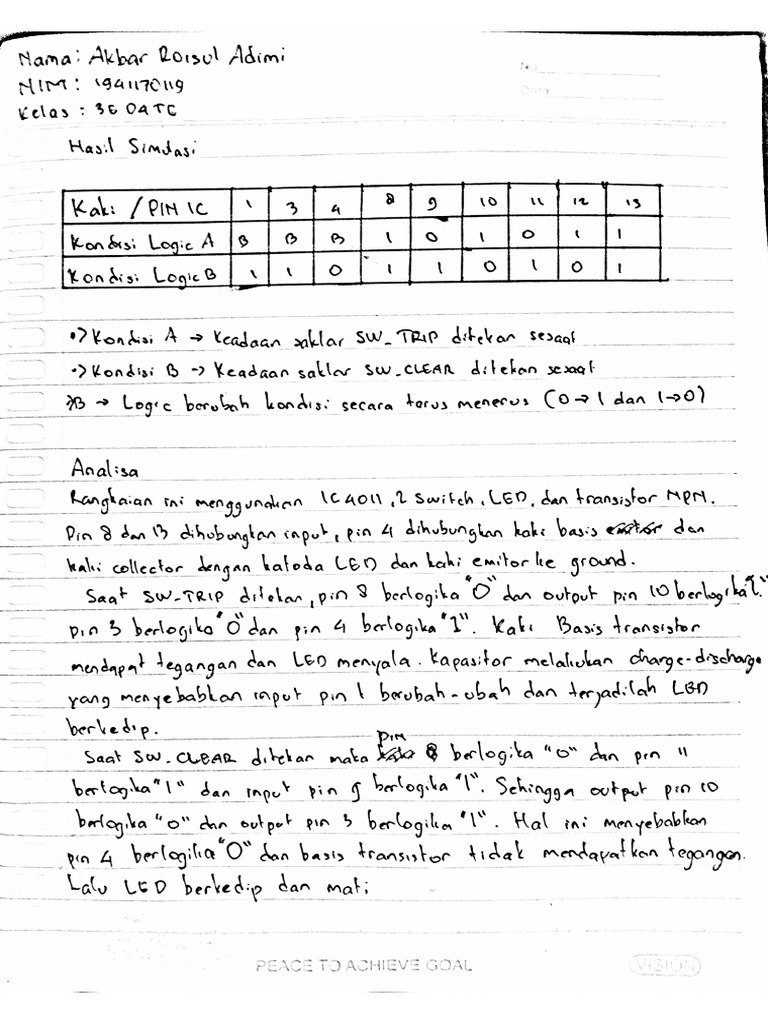 Nama: Akbar Roisul Adimi
No
Date
NIM: 1941170119
Kelas: 3E OATC
Hasil Simulasi
Kaki / PIN IC 1 3 4 8 9 10 11 12 13
Kondisi Logic A B B B 1 0 1 0 1 1
Kondisi Logic B 1 1 0 1 1 0 1 0 1
•> Kondisi A → Keadaan saklar SW_TRIP ditekan sesaat
•> Kondisi B -> Keadaan saklar SW_CLEAR ditekan sesaat
*B → Logic berubah kondisi secara terus menerus (0→1 dan 1→0)
Analisa
Rangkaian ini menggunakan IC 4011, 2 switch, LED, dan transistor NPN.
Pin 8 dan 13 dihubungkan input, pin 4 dihubungkan kaki basis emitor dan
kaki collector dengan katoda LED dan kaki emitor ke ground.
Saat SW-TRIP ditekan, pin 8 berlogika "0" dan output pin 10 berlogika "1".
pin 3 berlogika "0" dan pin 4 berlogika "1". Kaki Basis transistor
mendapat tegangan dan LED menyala. Kapasitor melakukan charge-discharge
yang menyebabkan input pin 1 berubah-ubah dan terjadilah LED
berkedip.
Saat SW-CLEAR ditekan maka pin 8 berlogika "0" dan pin 11
berlogika "1" dan input pin 9 berlogika "1". Sehingga output pin 10
berlogika "0" dan output pin 3 berlogika "1". Hal ini menyebabkan
pin 4 berlogika "0" dan basis transistor tidak mendapatkan tegangan.
Lalu LED berkedip dan mati;
PEACE TO ACHIEVE GOAL
VISION